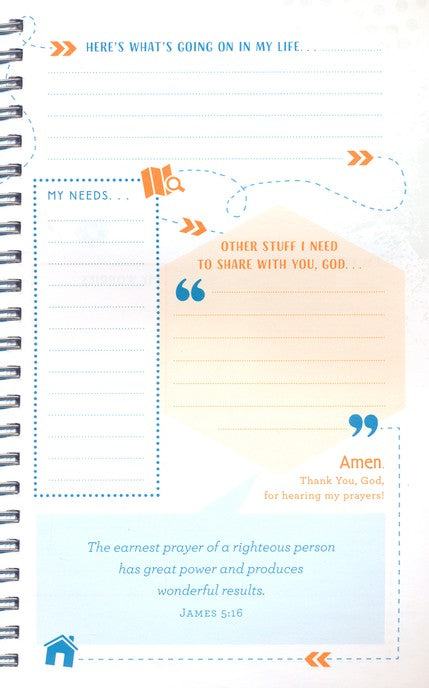 HERE'S WHAT'S GOING ON IN MY LIFE. . .
MY NEEDS. . .
OTHER STUFF I NEED
TO SHARE WITH YOU, GOD. . .
“
”
Amen.
Thank You, God,
for hearing my prayers!
The earnest prayer of a righteous person
has great power and produces
wonderful results.
JAMES 5:16